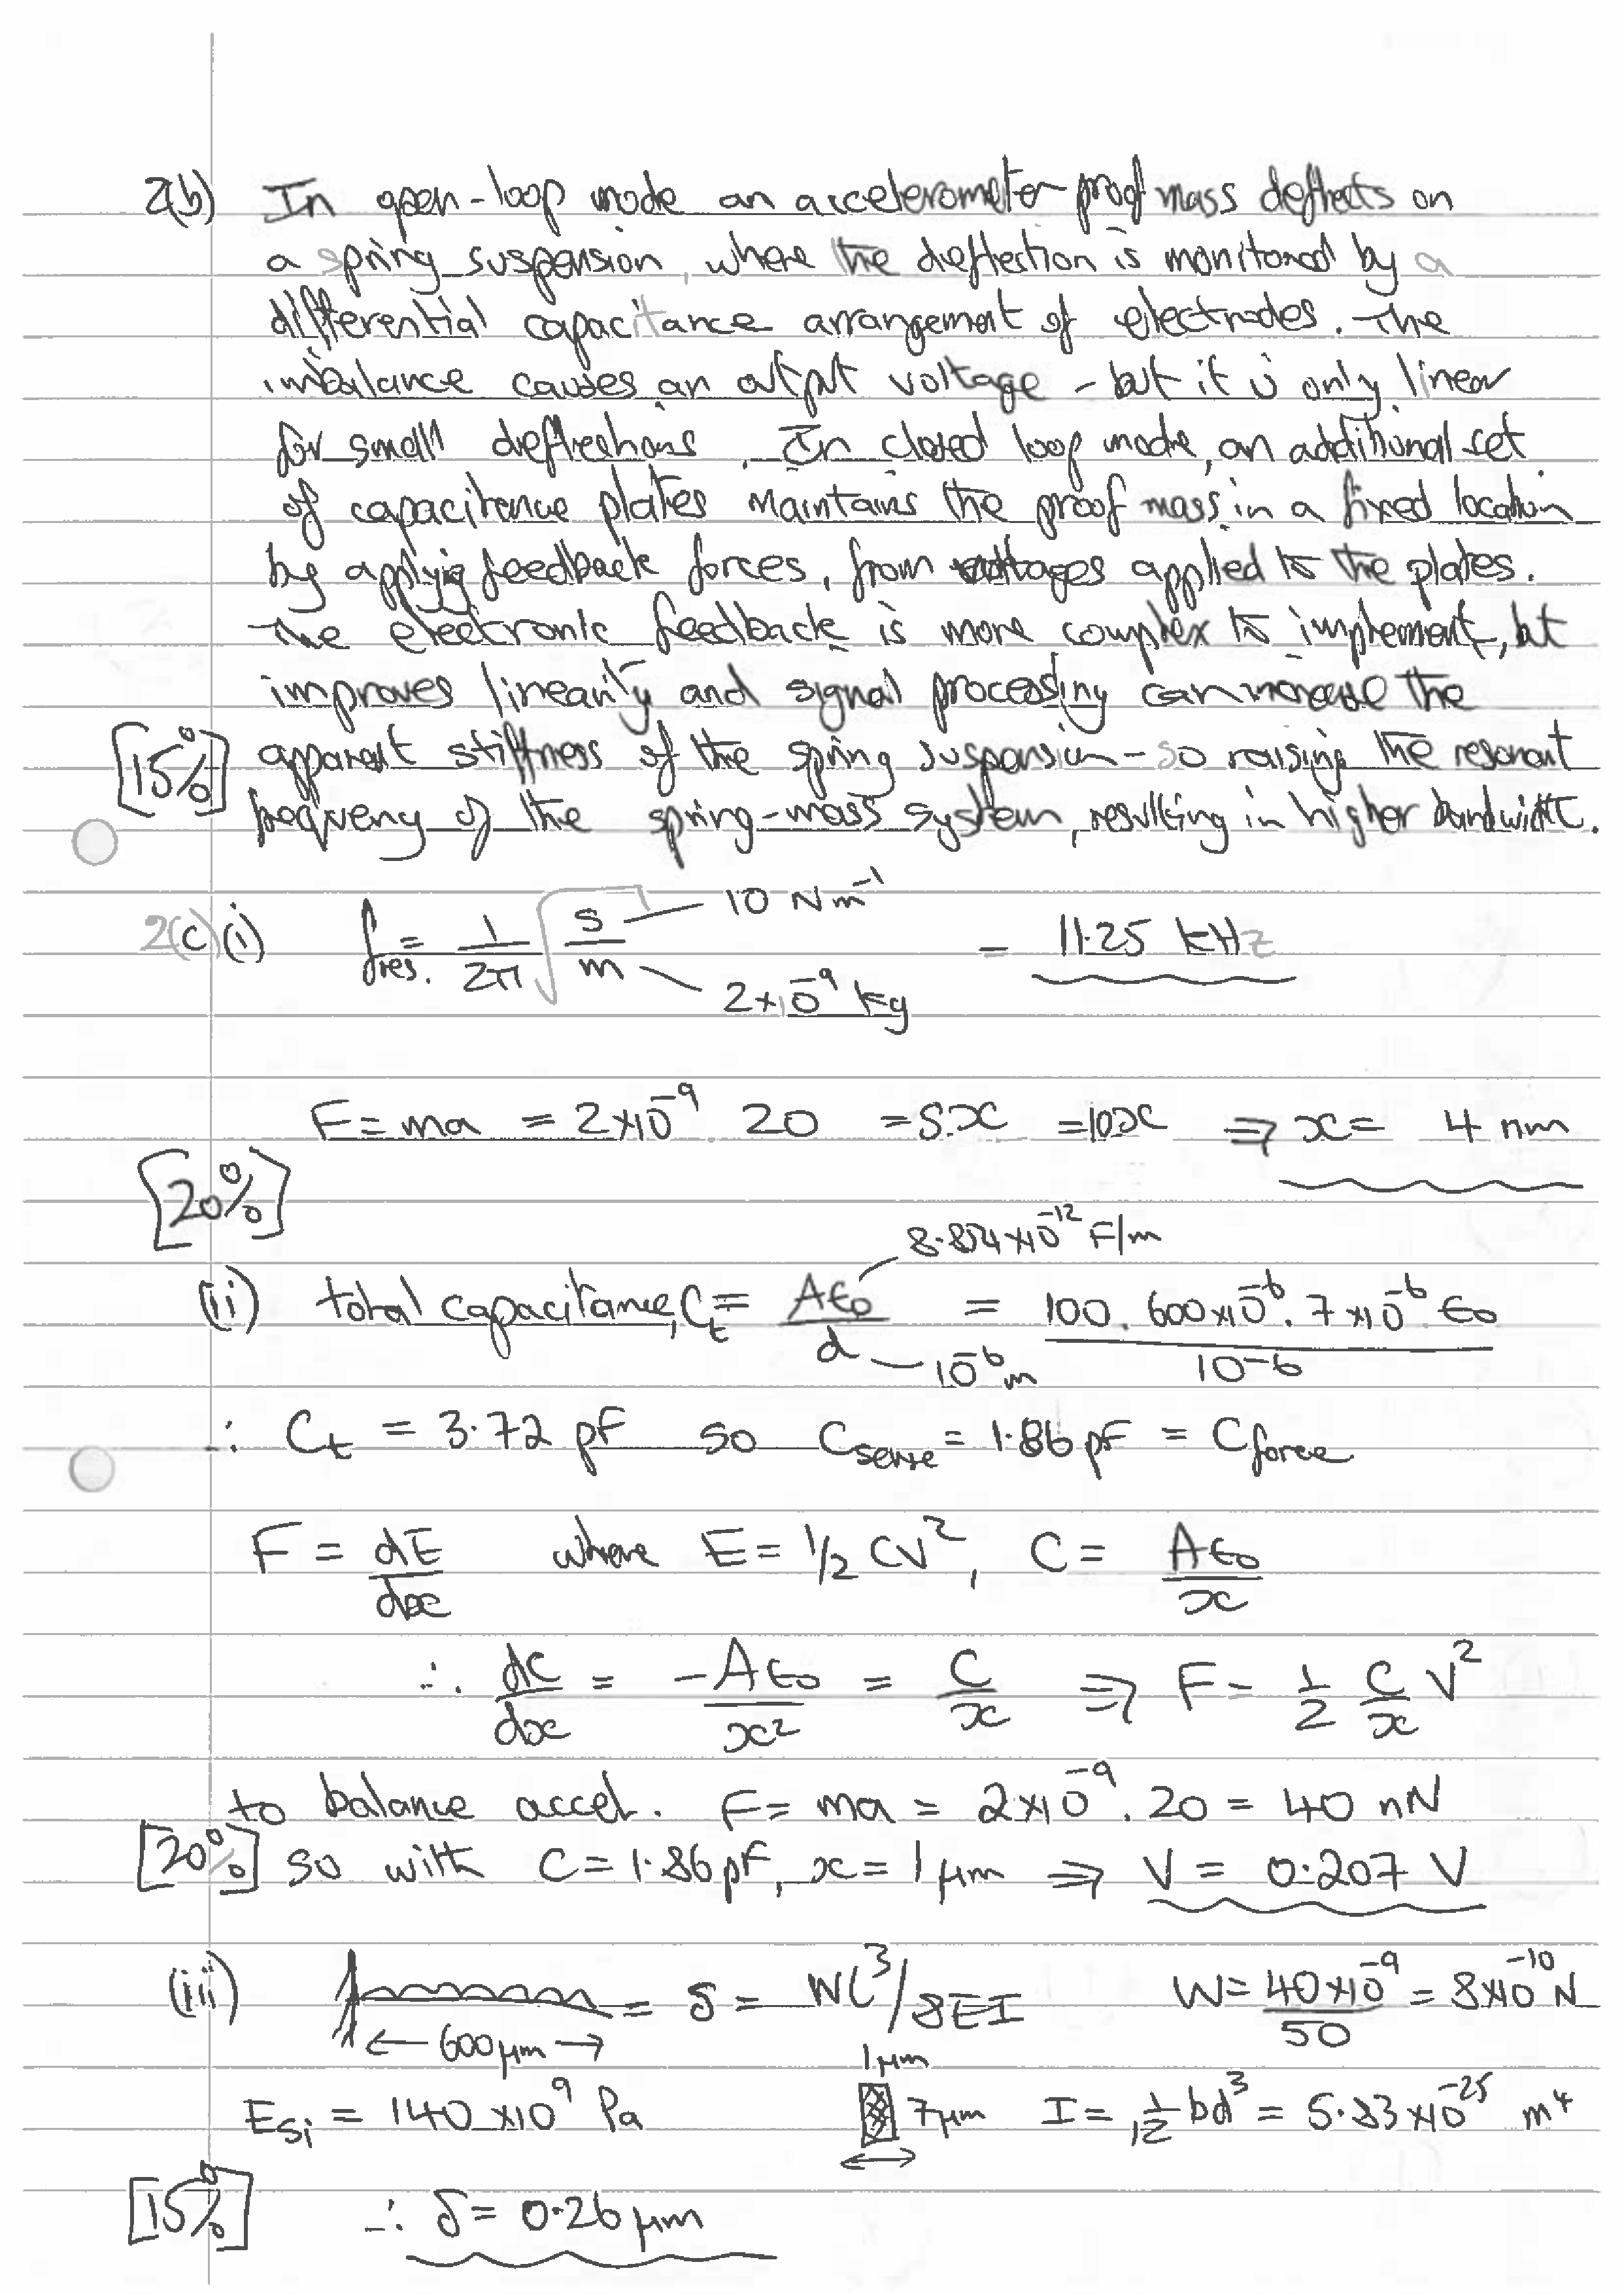 2(b) In open-loop mode an accelerometer proof mass deflects on
a spring suspension, where the deflection is monitored by a
differential capacitance arrangement of electrodes. The
imbalance causes an output voltage - but it is only linear
for small deflections. In closed loop mode, an additional set
of capacitance plates maintains the proof mass in a fixed location
by applying feedback forces, from voltages applied to the plates.
The electronic feedback is more complex to implement, but
improves linearity and signal processing can increase the
[15%] apparent stiffness of the spring suspension - so raising the resonant
frequency of the spring-mass system, resulting in higher bandwidth.
2(c)(i) f_res. = 1/2π √(s/m) 10 Nm⁻¹ = 11.25 kHz
2×10⁻⁹ kg
F = ma = 2×10⁻⁹ 20 = s.x = 10x ⇒ x = 4 nm
[20%]
8.854×10⁻¹² F/m
(ii) total capacitance, C_t = Aϵ₀/d = 100. 600×10⁻⁶. 7×10⁻⁶ ϵ₀ / 10⁻⁶
10⁻⁶ m
∴ C_t = 3.72 pF so C_sense = 1.86 pF = C_force
F = dE/dx where E = ½ CV², C = Aϵ₀/x
∴ dC/dx = -Aϵ₀/x² = C/x ⇒ F = ½ C/x V²
to balance accel. F = ma = 2×10⁻⁹. 20 = 40 nN
[20%] so with C = 1.86 pF, x = 1 μm ⇒ V = 0.207 V
(iii) = δ = WL³/8EI W = 40×10⁻⁹/50 = 8×10⁻¹⁰ N
← 600 μm →
1 μm
E_Si = 140×10⁹ Pa 7 μm I = 1/12 bd³ = 5.83×10⁻²⁵ m⁴
[15%] ∴ δ = 0.26 μm